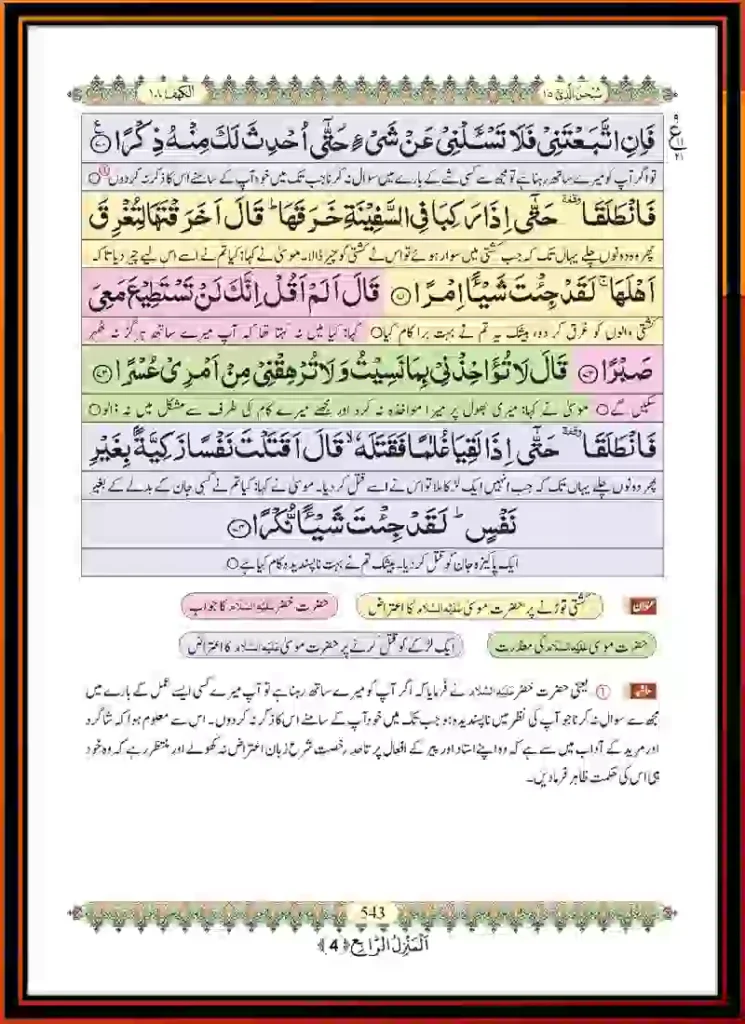 سُبْحٰنَ الَّذِیْۤ ۱۵
الکهف ۱۸
ع
۹
۱۱
۲۱
قَالَ فَاِنِ اتَّبَعْتَنِیْ فَلَا تَسْـَٔلْنِیْ عَنْ شَیْءٍ حَتّٰۤی اُحْدِثَ لَكَ مِنْهُ ذِكْرًا ﴿۷۰﴾
تو اگر آپ کو میرے ساتھ رہنا ہے تو مجھ سے کسی شے کے بارے میں سوال نہ کرنا جب تک میں خود آپ کے سامنے اس کا ذکر نہ کردوں ①○
فَانْطَلَقَا ٝ حَتّٰۤی اِذَا رَكِبَا فِی السَّفِیْنَةِ خَرَقَهَا ؕ قَالَ اَخَرَقْتَهَا لِتُغْرِقَ
پھر وہ دونوں چلے یہاں تک کہ جب کشتی میں سوار ہوئے تو اس نے کشتی کو چیر ڈالا۔ موسیٰ نے کہا: کیا تم نے اسے اس لیے چیر دیا تاکہ
اَهْلَهَا ۚ لَقَدْ جِئْتَ شَیْـًٔا اِمْرًا ﴿۷۱﴾ قَالَ اَلَمْ اَقُلْ اِنَّكَ لَنْ تَسْتَطِیْعَ مَعِیَ
کشتی والوں کو غرق کر دو، بیشک یہ تم نے بہت برا کام کیا○ کہا: کیا میں نہ کہتا تھا کہ آپ میرے ساتھ ہرگز نہ ٹھہر
صَبْرًا ﴿۷۲﴾ قَالَ لَا تُؤَاخِذْنِیْ بِمَا نَسِیْتُ وَ لَا تُرْهِقْنِیْ مِنْ اَمْرِیْ عُسْرًا ﴿۷۳﴾
سکیں گے○ موسیٰ نے کہا: میری بھول پر میرا مواخذہ نہ کرو اور مجھے میرے کام کی طرف سے مشکل میں نہ ڈالو○
فَانْطَلَقَا ٝ حَتّٰۤی اِذَا لَقِیَا غُلٰمًا فَقَتَلَهٗ ۙ قَالَ اَقَتَلْتَ نَفْسًا زَكِیَّةًۢ بِغَیْرِ
پھر دونوں چلے یہاں تک کہ جب انہیں ایک لڑکا ملا تو اس نے اسے قتل کر دیا۔ موسیٰ نے کہا: کیا تم نے کسی جان کے بدلے کے بغیر
نَفْسٍ ؕ لَقَدْ جِئْتَ شَیْـًٔا نُّكْرًا ﴿۷۴﴾
ایک پاکیزہ جان کو قتل کردیا۔ بیشک تم نے بہت ناپسندیدہ کام کیا ہے○
عنوان کشتی توڑنے پر حضرت موسیٰ علیہ السلام کا اعتراض حضرت خضر علیہ السلام کا جواب
حضرت موسیٰ علیہ السلام کی معذرت ایک لڑکے کو قتل کرنے پر حضرت موسیٰ علیہ السلام کا اعتراض
حاشیہ ① یعنی حضرت خضر علیہ السلام نے فرمایا کہ اگر آپ کو میرے ساتھ رہنا ہے تو آپ میرے کسی ایسے عمل کے بارے میں
مجھ سے سوال نہ کرنا جو آپ کی نظر میں ناپسندیدہ ہو جب تک میں خود آپ کے سامنے اس کا ذکر نہ کردوں۔ اس سے معلوم ہوا کہ شاگرد
اور مرید کے آداب میں سے ہے کہ وہ اپنے استاد اور پیر کے افعال پر تاحدِ رخصتِ شرع زبانِ اعتراض نہ کھولے اور منتظر رہے کہ وہ خود
ہی اس کی حکمت ظاہر فرمادیں۔
543
اَلْمَنْزِلُ الرَّابِع ﴿4﴾